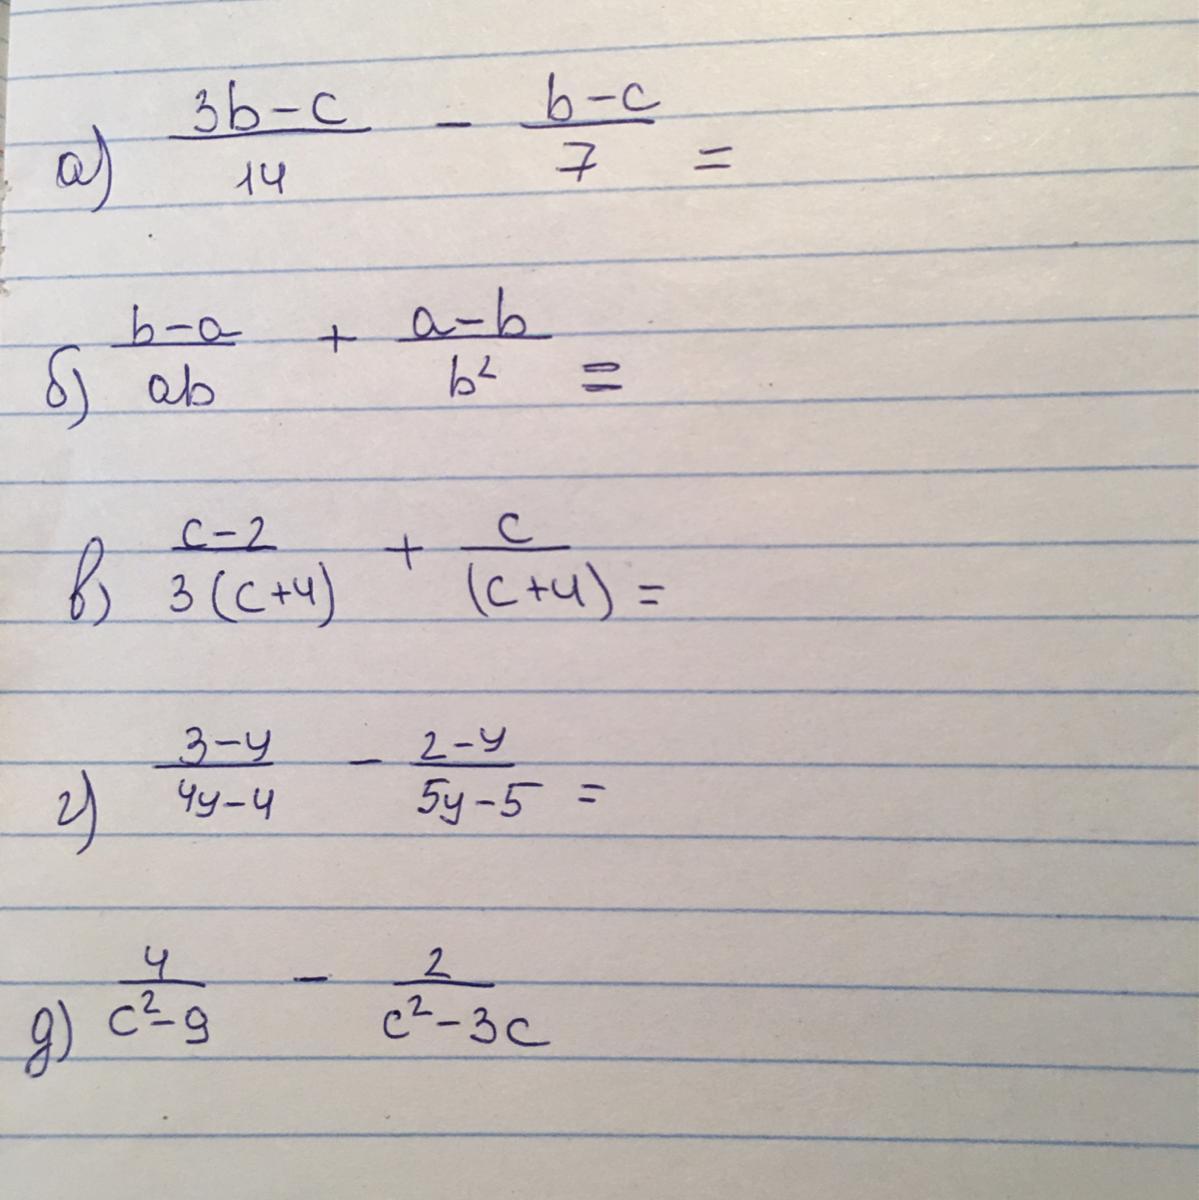 а) (3b-c)/14 - (b-c)/7 =
б) (b-a)/(ab) + (a-b)/b² =
в) (c-2)/(3(c+4)) + c/((c+4)) =
г) (3-y)/(4y-4) - (2-y)/(5y-5) =
д) 4/(c²-9) - 2/(c²-3c)